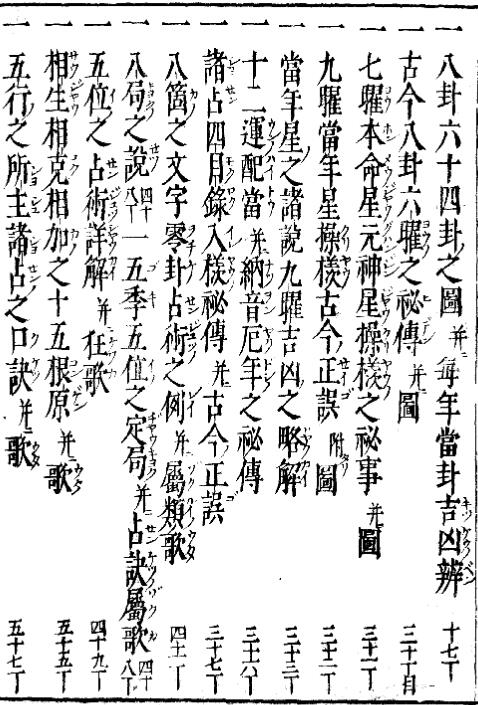 一 八卦六十四卦之圖 并ニ 毎年當卦吉凶辨 十七丁
一 古今八卦六曜之祕傳 并ニ 圖 三十丁目
一 七曜本命星元神星操樣之祕事 并ニ 圖 三十一丁
一 九曜當年星操樣古今正誤 附タリ 圖 三十二丁
一 當年星之諸説九曜吉凶之略解 三十三丁
一 十二運配當 并ニ 納音厄年之祕傳 三十六丁
一 諸占四目錄入樣祕傳 并ニ 古今正誤 三十七丁
一 八箇之文字零卦占術之例 并ニ 屬類歌 四十一丁
一 八局之説 四十八丁 一 五季五位之定局 并ニ 占訣屬歌 四十八丁
一 五位之占術詳解 并ニ 狂歌 四十九丁
一 相生相克相加之十五根原 并ニ 歌 五十五丁
一 五行之所主諸占之口訣 并ニ 歌 五十七丁